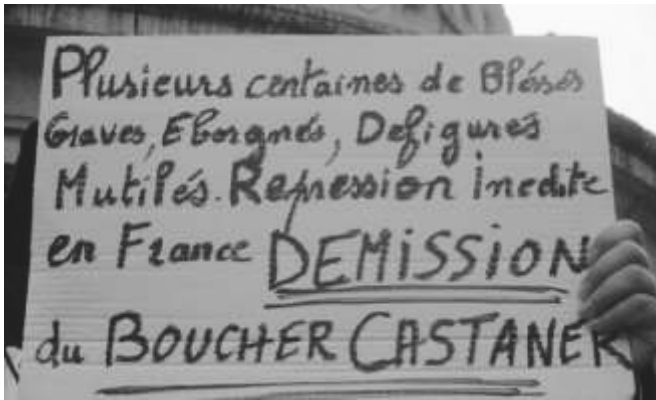 Plusieurs centaines de Blésés
Graves, Eborgnés, Defigurés
Mutilés. Repression inedite
en France DEMISSION
du BOUCHER CASTANER